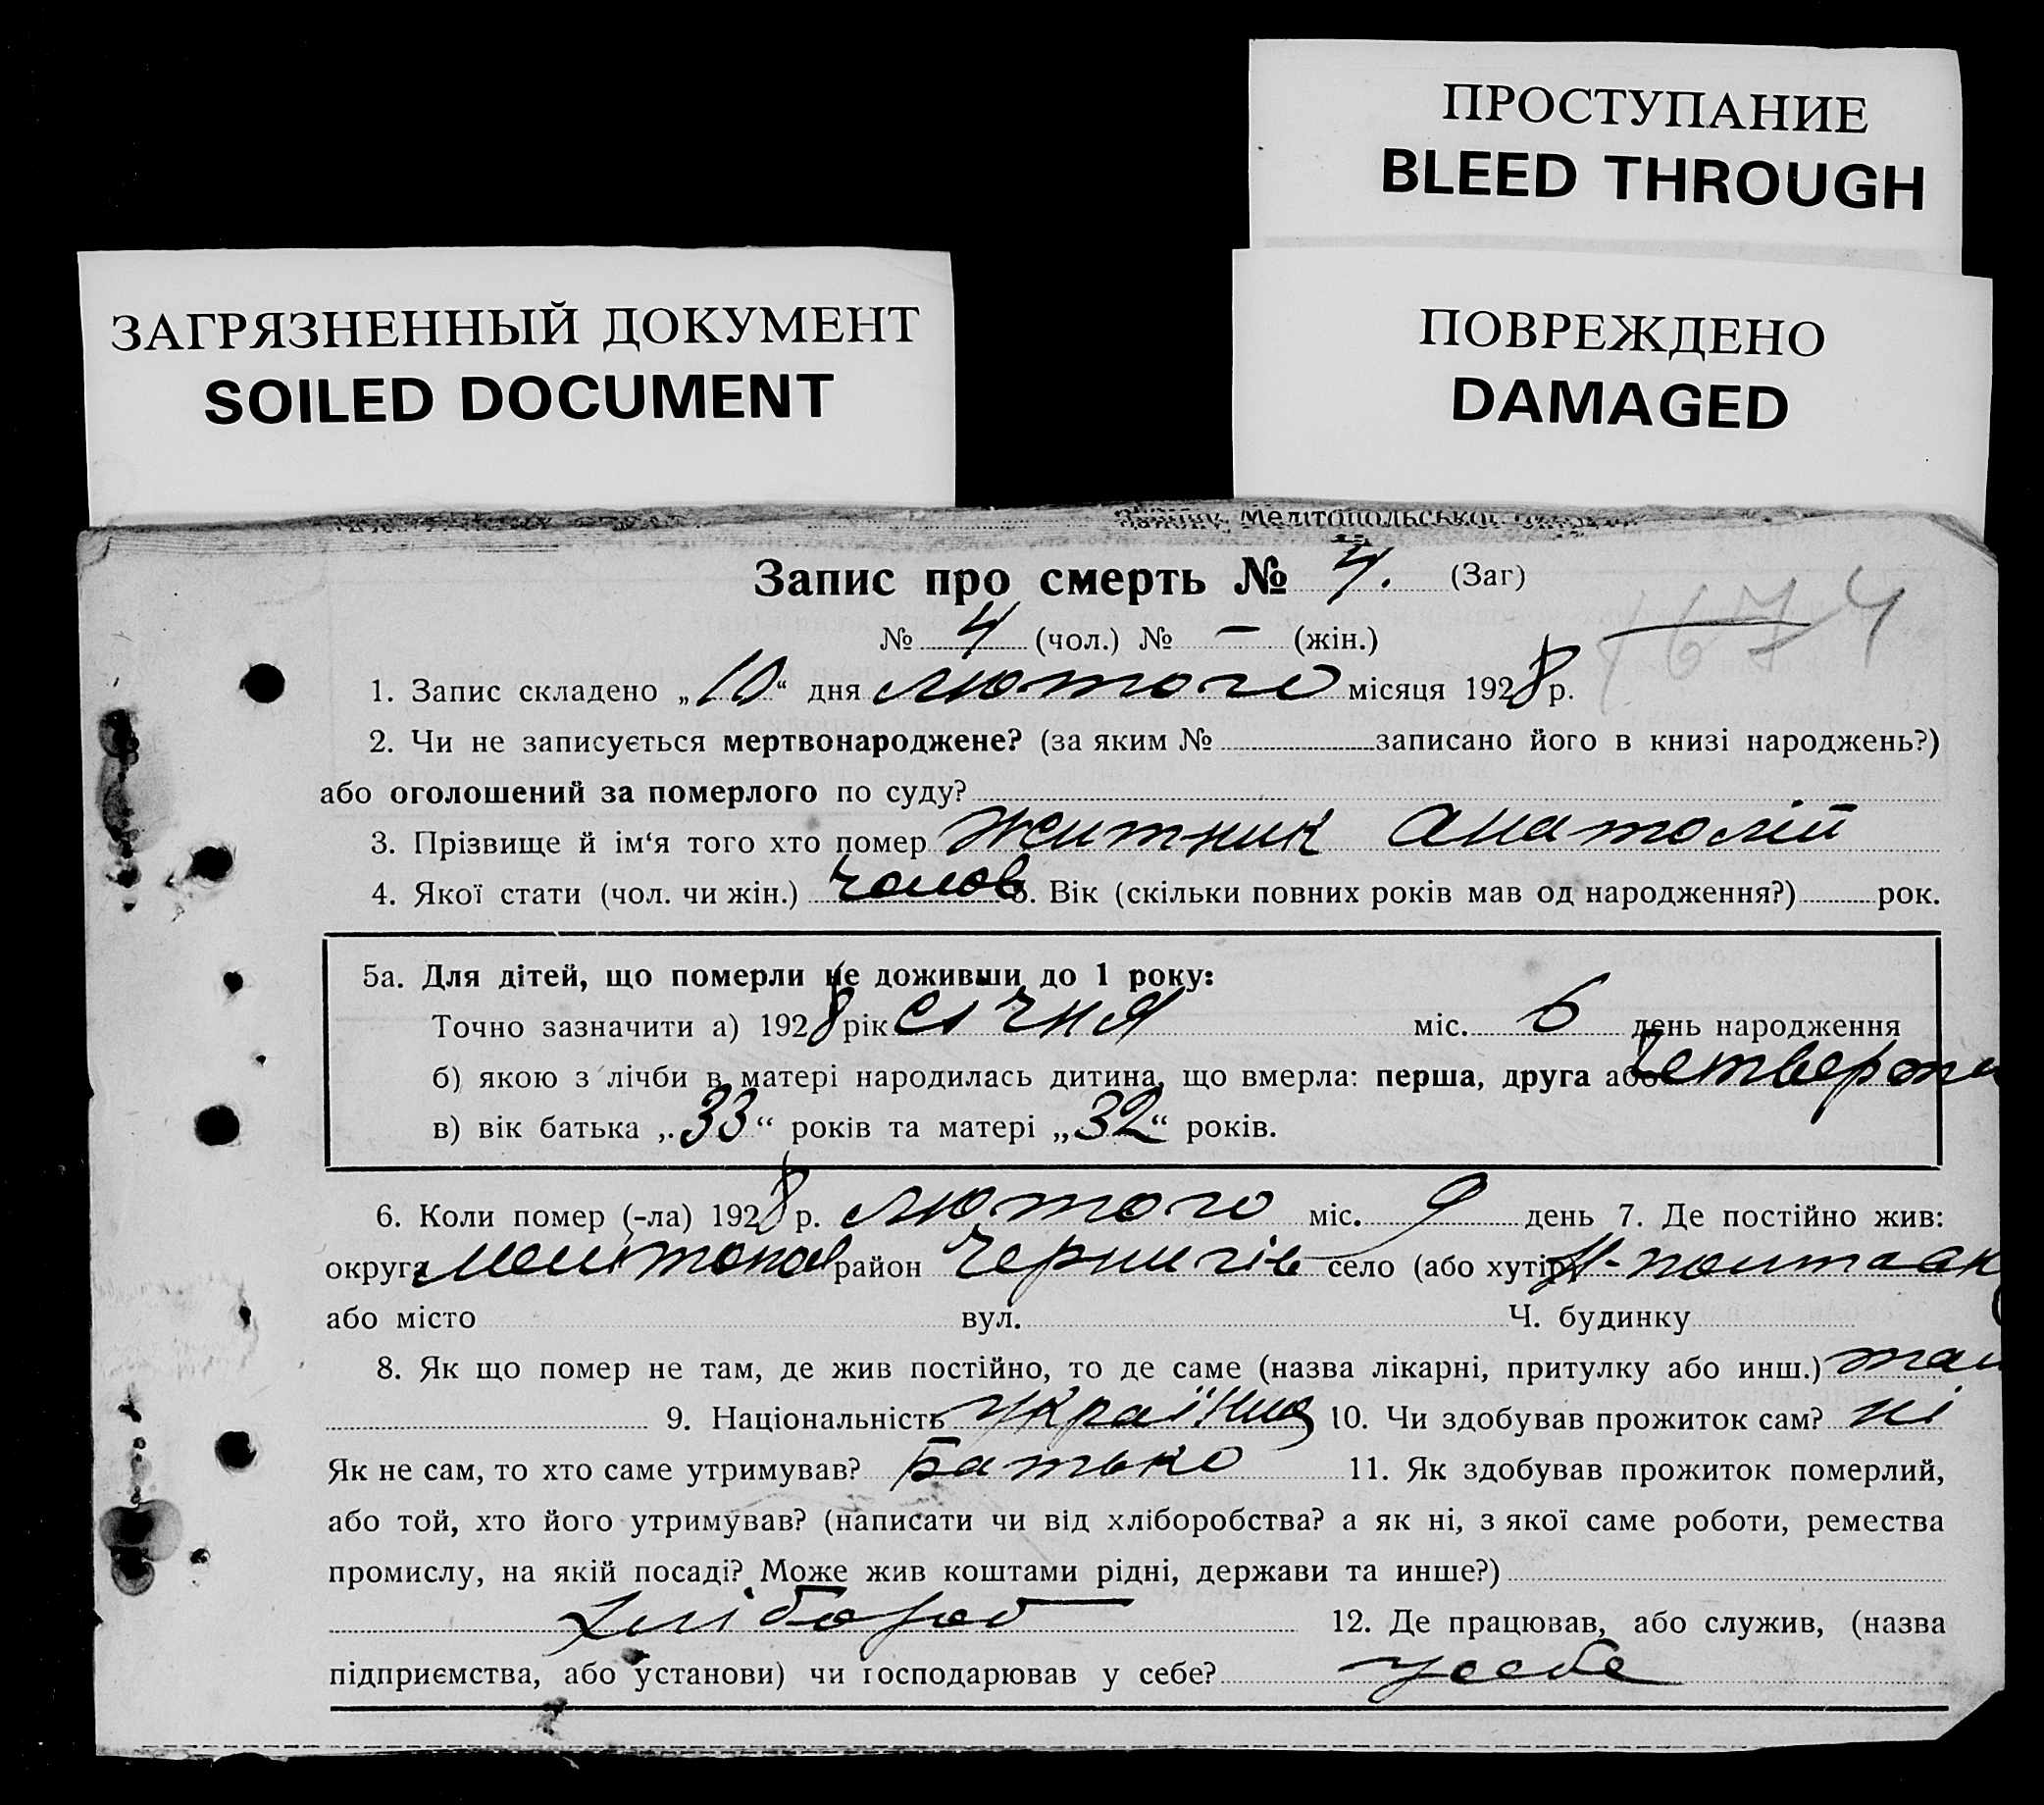 ПРОСТУПАНИЕ
BLEED THROUGH
ЗАГРЯЗНЕННЫЙ ДОКУМЕНТ
SOILED DOCUMENT
ПОВРЕЖДЕНО
DAMAGED
Мелітопольської
Запис про смерть № 4. (Заг)
№ 4 (чол.) № – (жін.)
1674
1. Запис складено „10“ дня лютого місяця 1928 р.
2. Чи не записується мертвонароджене? (за яким № записано його в книзі народжень?)
або оголошений за померлого по суду?
3. Прізвище й ім‘я того хто помер Житник Анатолій
4. Якої стати (чол. чи жін.) чолов 5. Вік (скільки повних років мав од народження?) рок.
5а. Для дітей, що померли не доживши до 1 року:
Точно зазначити а) 1928 рік січня міс. 6 день народження
б) якою з лічби в матері народилась дитина, що вмерла: перша, друга або четверта
в) вік батька „33“ років та матері „32“ років.
6. Коли помер (-ла) 1928 р. лютого міс. 9 день 7. Де постійно жив:
округа Мелітопол район Чернигів село (або хутір)
або місто вул. Ч. будинку
8. Як що помер не там, де жив постійно, то де саме (назва лікарні, притулку або инш.) там
9. Національність Українец 10. Чи здобував прожиток сам? ні
Як не сам, то хто саме утримував? Батько 11. Як здобував прожиток померлий,
або той, хто його утримував? (написати чи від хліборобства? а як ні, з якої саме роботи, ремества
промислу, на якій посаді? Може жив коштами рідні, держави та инше?)
Хлібороб 12. Де працював, або служив, (назва
підприємства, або установи) чи господарював у себе? усебе